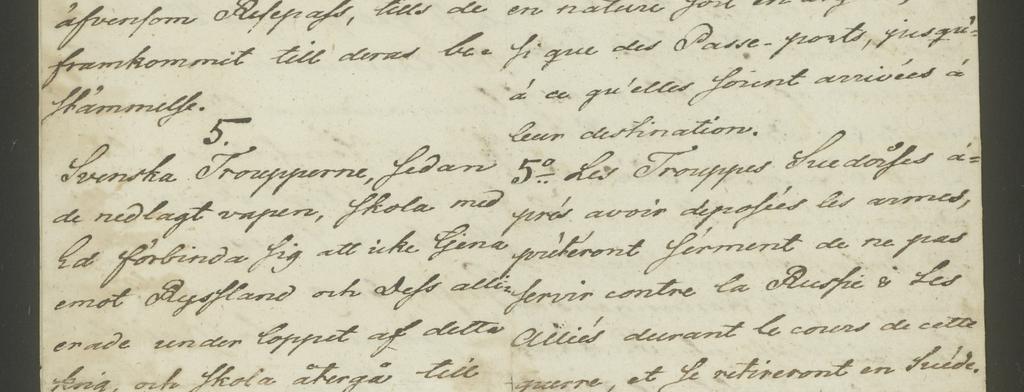 äfvensom Resepass, tills de
framkommit till deras be=
stämmelse.
5.
Svenska Troupperne, sedan
de nedlagt vapen, skola med
Ed förbinda sig att icke tjena
emot Ryssland och Dess alli=
erade under loppet af detta
krig, och skola återgå till
en nature soit en
si que des Passe-ports, jusqu'=
à ce qu'elles soient arrivées à
leur destination.
5o. Les Trouppes Suedoises a=
prés avoir deposées les armes,
prêteront serment de ne pas
servir contre la Russie & Ses
Alliés durant le cours de cette
guerre, et se retireront en Suéde,